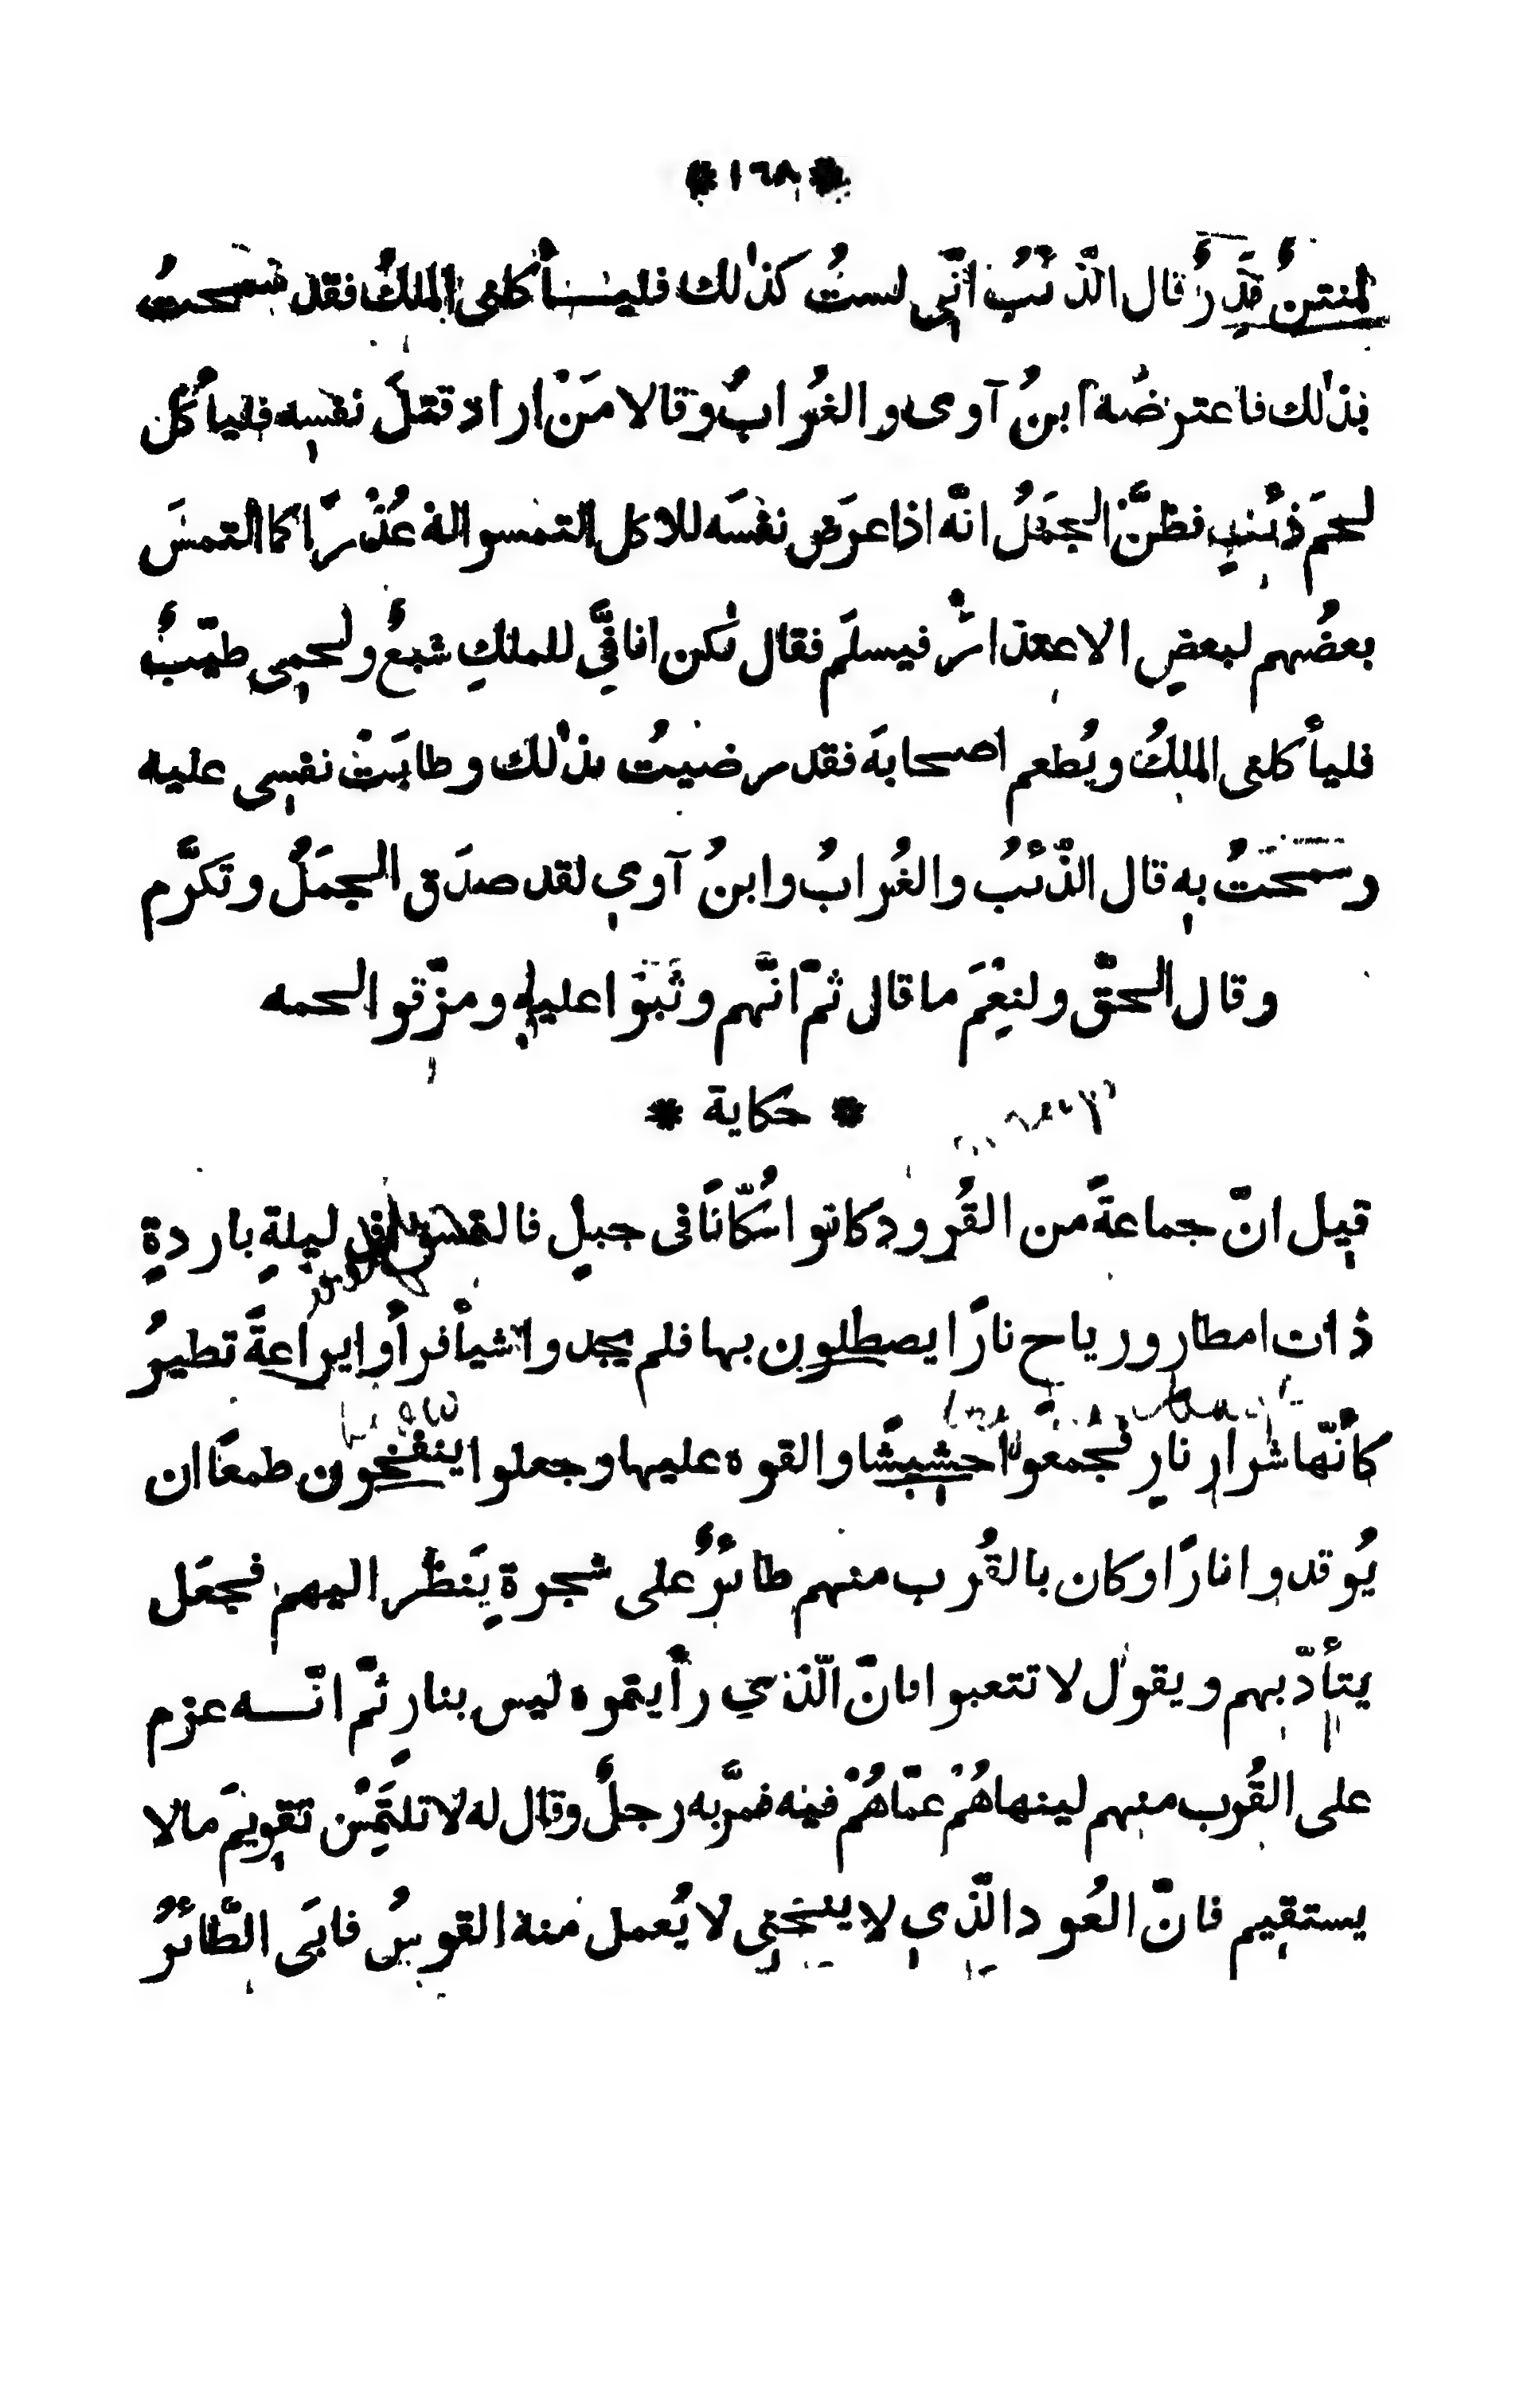 * ١٦٨ *
لمنتنٌ قَذِرٌ قال الذّئبُ انّى لستُ كذٰلك فليأكلنى الملكُ فقد سمحتُ
بذٰلك فاعترضُه ابنُ آوى والغُرابُ وقالا مَنْ اراد قتلَ نفسِه فلياُكل
لحمَ ذئبٍ فظنَّ الجمَلُ انّه اذا عرَض نفسَه للاكل التمسوا له عُذْرًا كما التمسَ
بعضُهم لبعضٍ الاعتذارَ فيسلَم فقال لٰكن انا فيَّ للملكِ شبعٌ ولحمِى طيّبٌ
فليأكلنى الملكُ ويُطعم اصحابَه فقد رضيتُ بذٰلك وطابَتْ نفسِى عليه
وسمَحتُ به قال الذّئبُ والغُرابُ وابنُ آوى لقد صدَق الجمَلُ وتكرَّم
وقال الحقّ ولنِعْمَ ما قال ثمّ انّهم وثَبَوا عليهِ ومزّقوا لحمه
* حكاية *
قيل انّ جماعةً من القُرود كانوا سُكّانًا فى جبلٍ فالتمسوا فى ليلةٍ باردةٍ
ذات امطار ورياح نارًا يصطلون بها فلم يجدوا شيأ فرأوا يراعةً تطيرُ
كأنّها شرار نارٍ فجمعوا حشيشًا والقوه عليها وجعلوا ينفخون طمعًا ان
يُوقدوا نارًا وكان بالقُرب منهم طائرٌ على شجرةٍ يَنظُر اليهم فجعَل
يتأذّ بهم ويقول لا تتعبوا فانّ الّذي رأيتموه ليس بنارٍ ثمّ انّه عزم
على القُرب منهم لينهاهُمْ عمّاهُمْ فيه فمرَّ به رجلٌ وقال له لا تلتَمِسْ تقويمَ مالا
يستقيم فانّ العُود الّذى لا ينحنى لا يُعمل منه القوسُ فابَى الطّائرُ